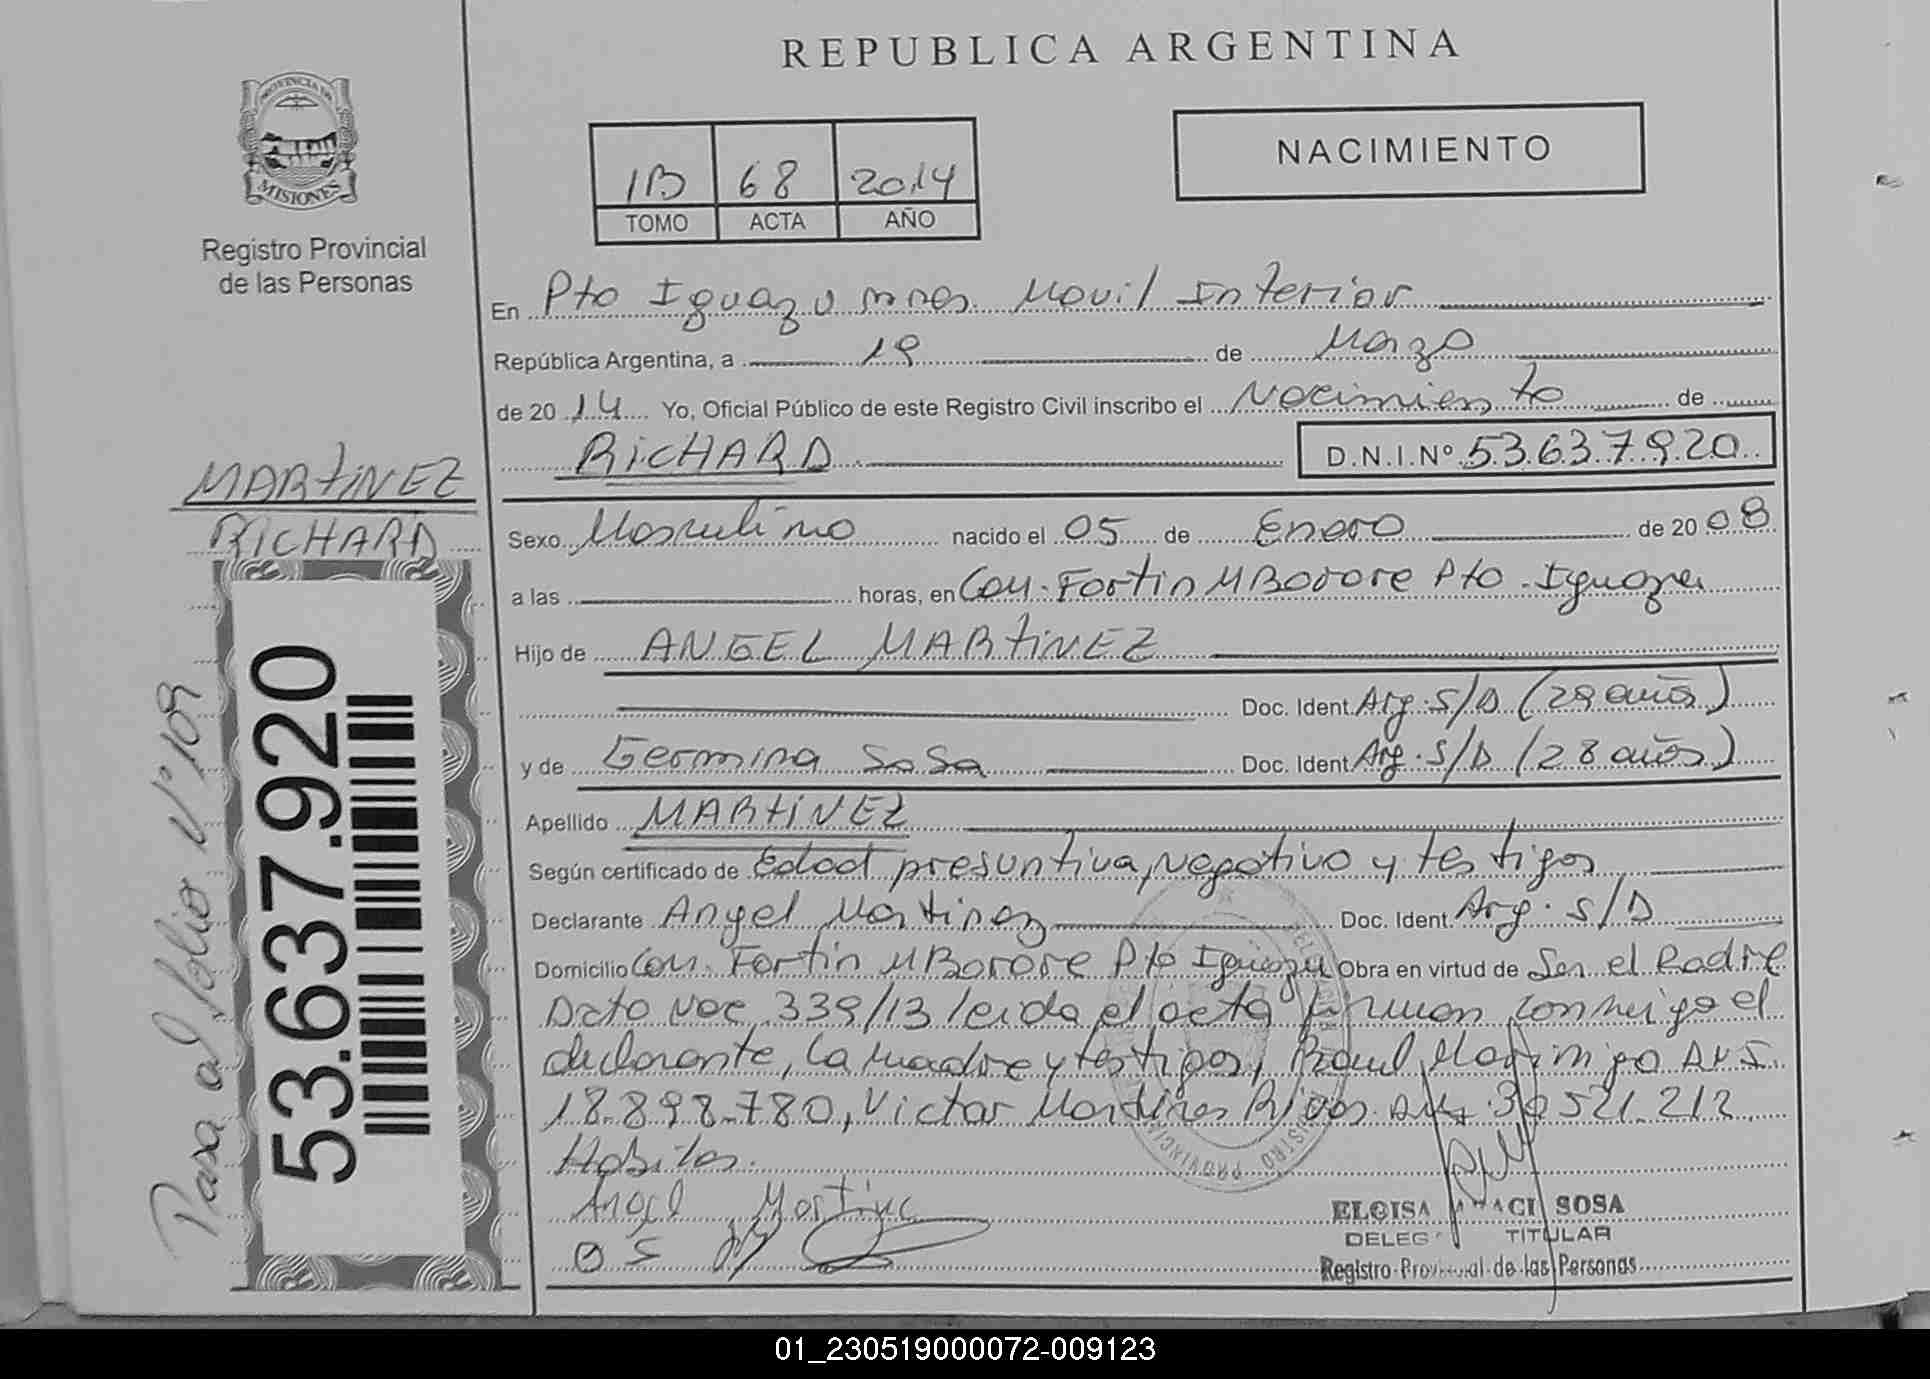 REPUBLICA ARGENTINA
PROVINCIA DE
MISIONES
Registro Provincial
de las Personas
1B 68 2014
TOMO ACTA AÑO
NACIMIENTO
En Pto Iguazu mnes. Movil Interior
República Argentina, a 19 de Marzo
de 2014 Yo, Oficial Público de este Registro Civil inscribo el Nacimiento de
RICHARD D.N.I.Nº 53.637.920
MARTINEZ
RICHARD
Sexo Masculino nacido el 05 de Enero de 2008
a las horas, en Com. Fortin MBorore Pto. Iguazu
Hijo de ANGEL MARTINEZ
Doc. Ident. Arg. S/D (29 años)
y de Germina Sosa Doc. Ident. Arg. S/D (28 años)
Apellido MARTINEZ
Según certificado de Edad presuntiva, negativo y testigos
Declarante Angel Martinez Doc. Ident. Arg. S/D
Domicilio Com. Fortin MBorore Pto Iguazu Obra en virtud de Ser el Padre
Dcto Nac 339/13 leida el acta firman conmigo el
declarante, la madre y testigos, Raul DNI.
18.898.780, Victor Martines Rivas DNI 39521.212
Habiles.
Angel Martinc
ELOISA SOSA
DELEG TITULAR
Registro Provincial de las Personas
53.637.920
Pasa al folio Nº 109
01_230519000072-009123